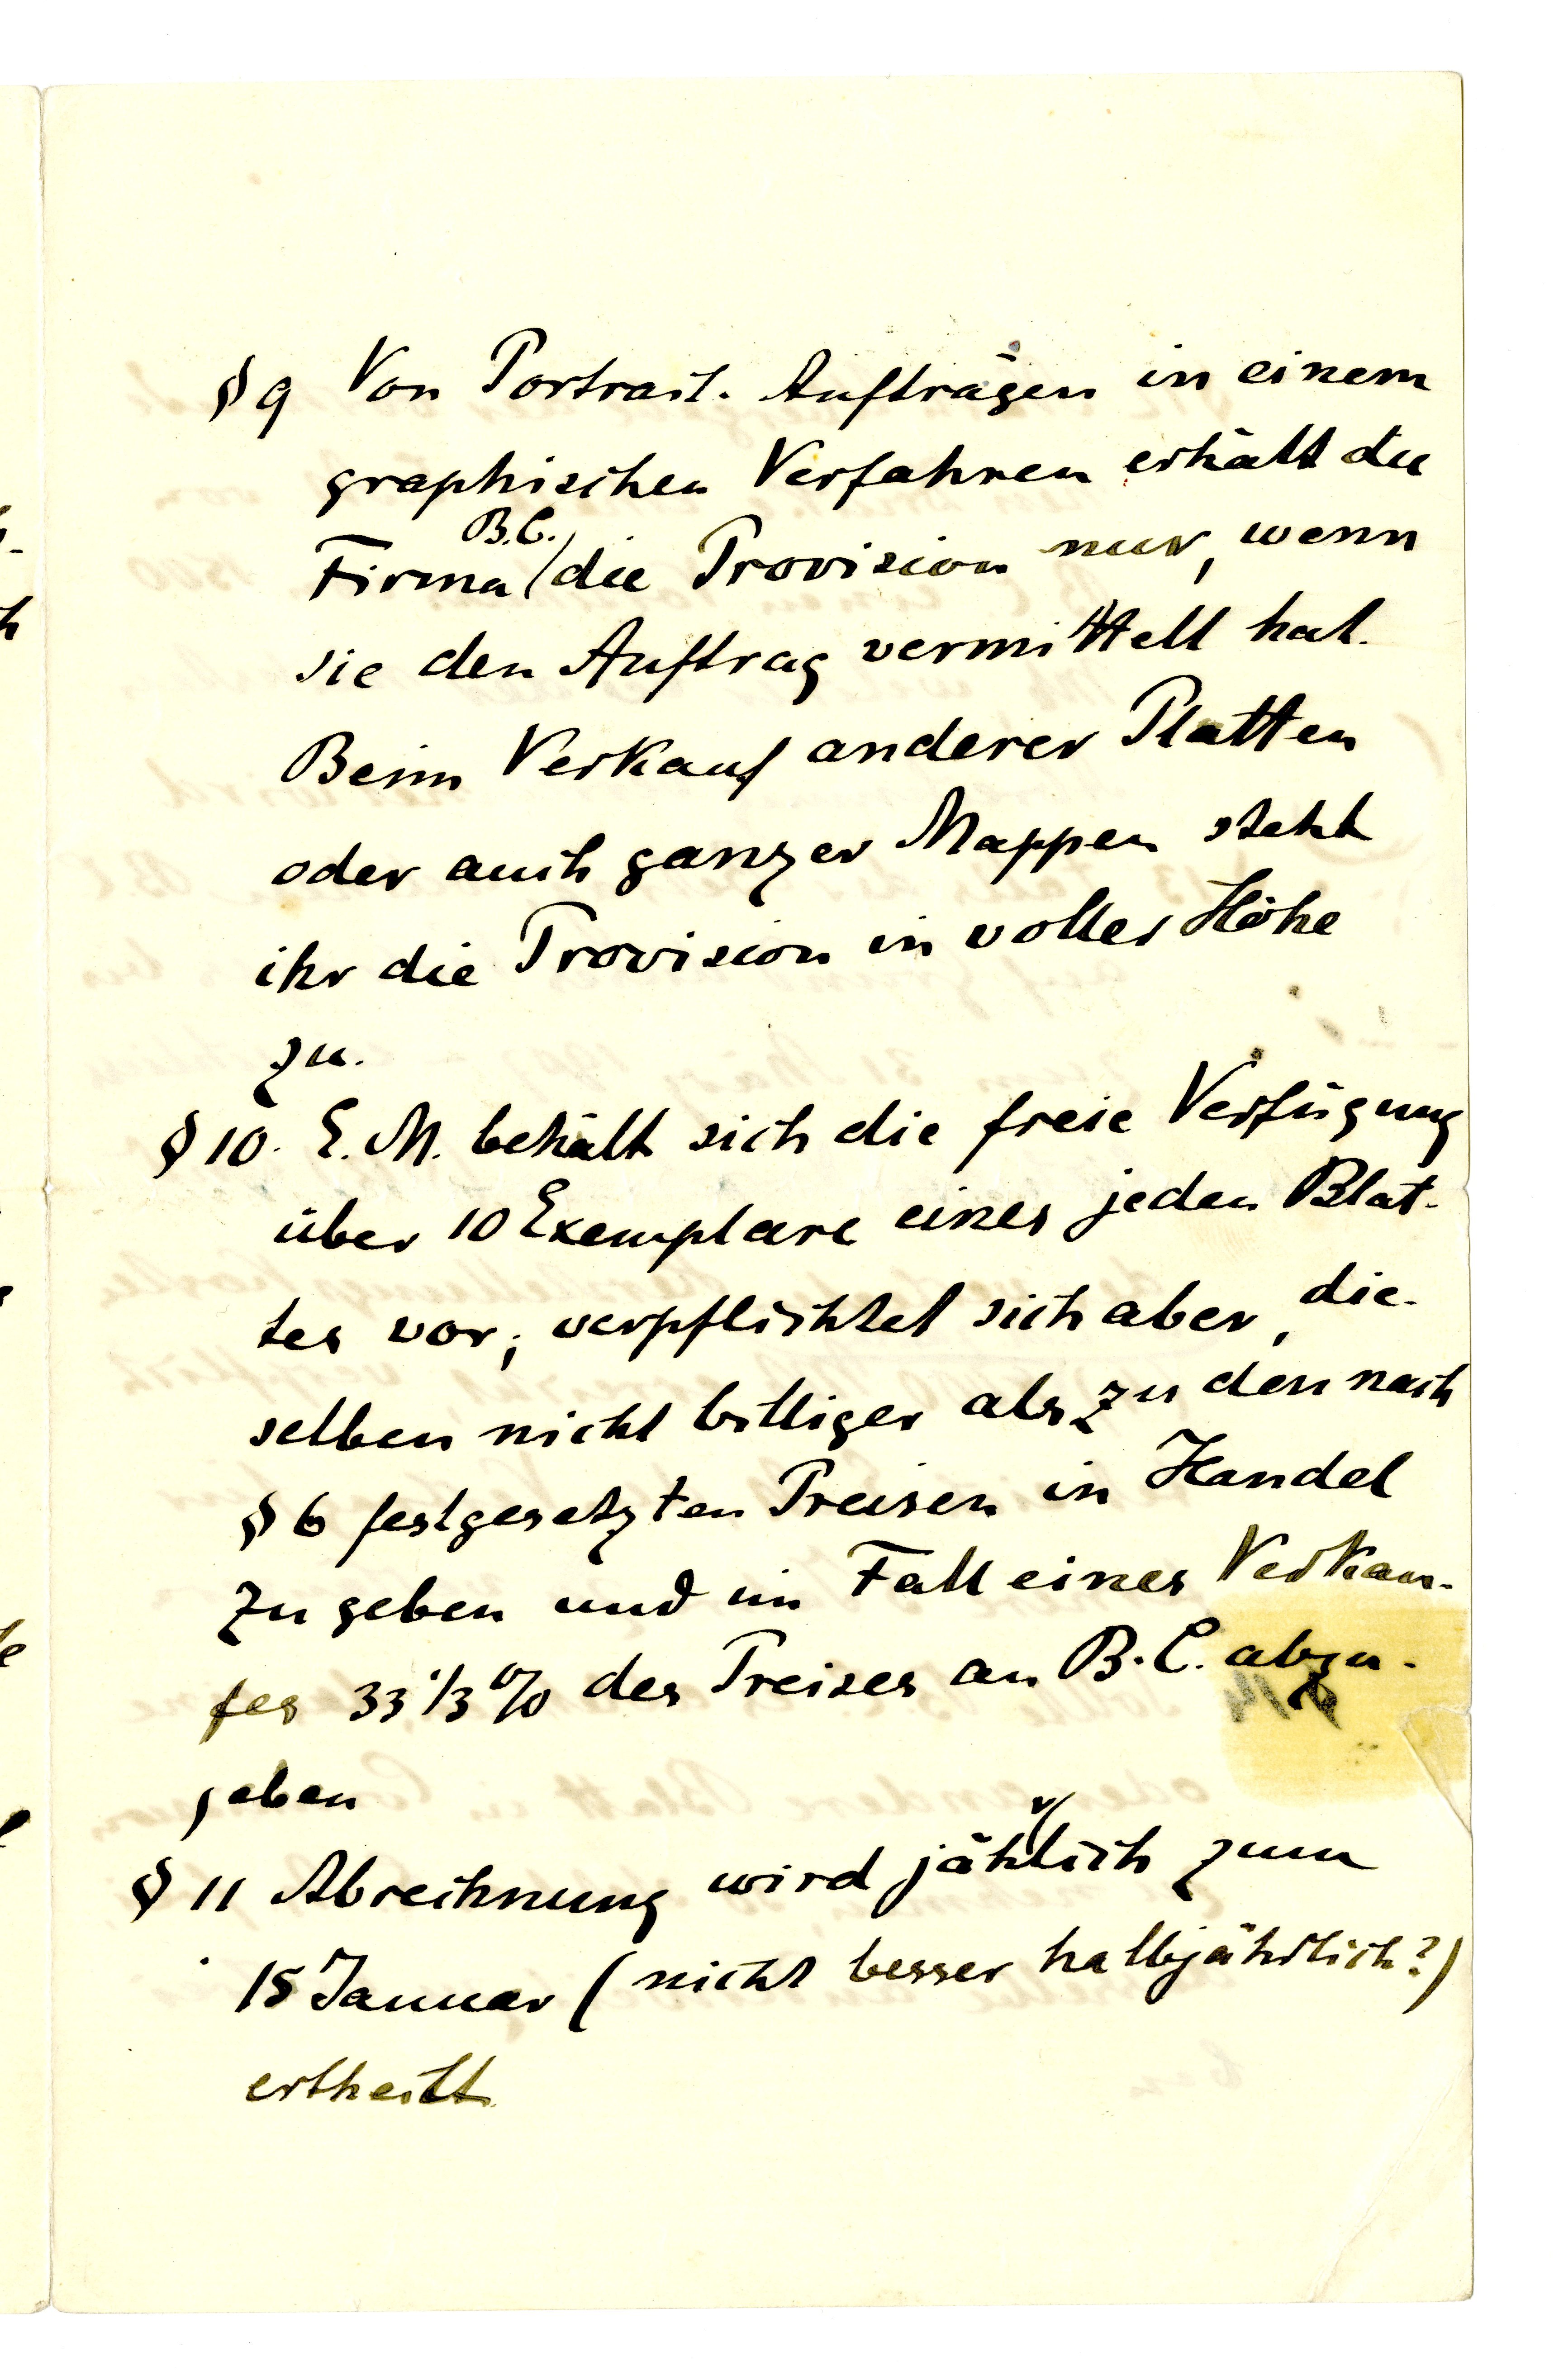 § 9 Von Portrait-Aufträgen in einem
graphischen Verfahren erhält die
B.C.
Firma die Provision nur, wenn
sie den Auftrag vermittelt hat.
Beim Verkauf anderer Platten
oder auch ganzer Mappen steht
ihr die Provision in voller Höhe
zu.
§ 10. E. M. behält sich die freie Verfügung
über 10 Exemplare eines jeden Blat-
tes vor, verpflichtet sich aber, die-
selben nicht billiger als zu den nach
§ 6 festgesetzten Preisen in Handel
zu geben und im Fall eines Verkau-
fes 33 1/3 % des Preises an B. C. abzu-
geben
§ 11 Abrechnung wird jährlich zum
15 Januar (nicht besser halbjährlich?)
ertheilt.